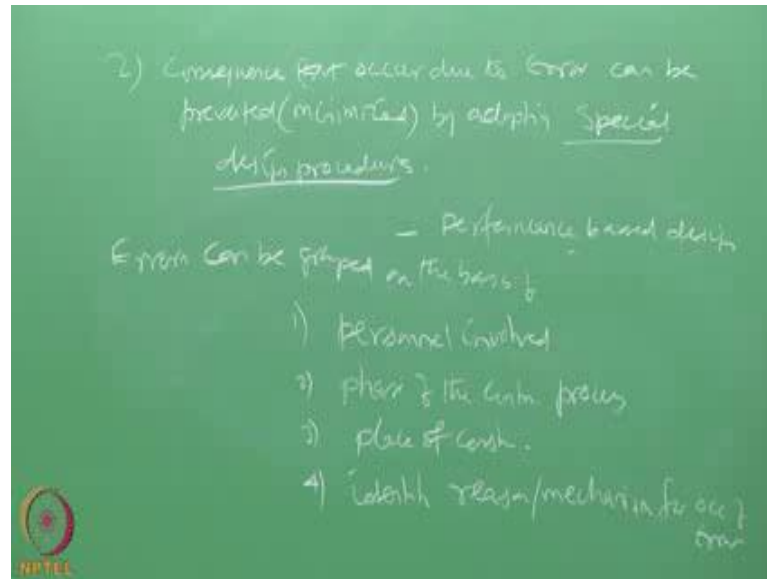 2) Consequence that occur due to Error can be
prevented (minimized) by adopting Special
design procedures.
- Performance based design
Errors can be grouped on the basis of
1) personnel involved
2) phase of the constn process
3) place of constn.
4) identify reason/mechanism for occ of
error
NPTEL